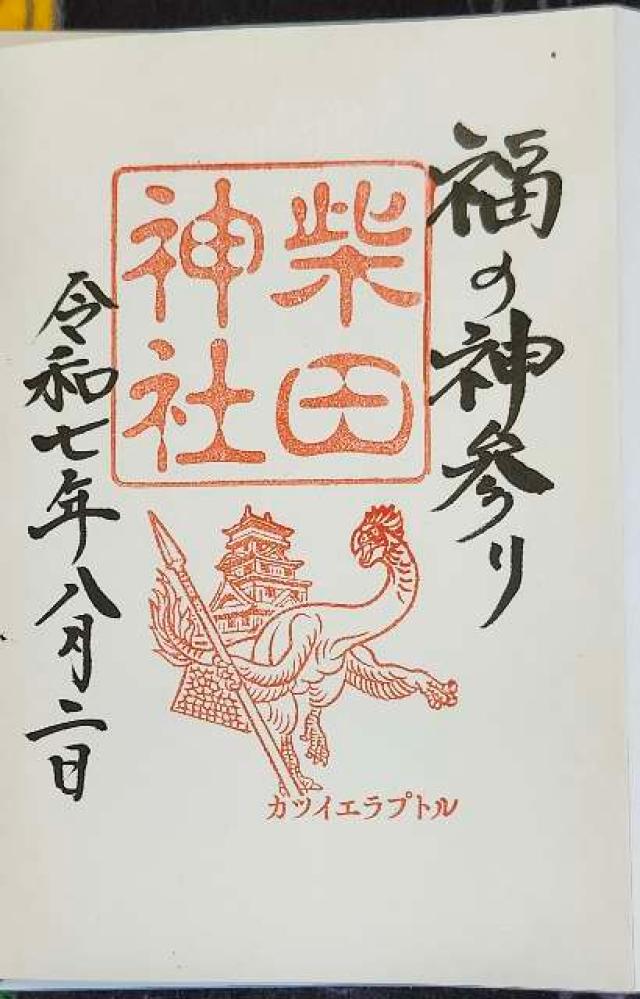 福の神参り
柴田
神社
令和七年八月二日
カツイエラプトル